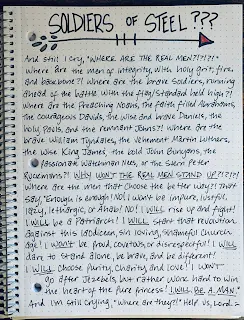 SOLDIERS OF STEEL???
And still I cry, "WHERE ARE THE REAL MEN?!?!?!"
Where are the men of integrity, with holy grit, fire,
and backbone?! Where are the brave soldiers, running
ahead of the battle with the flag/standard held high?!
Where are the Preaching Noahs, the faith filled Abrahams,
the courageous Davids, the wise and brave Daniels, the
holy Pauls, and the remnant Johns?! Where are the
brave William Tyndales, the vehement Martin Luthers,
the wise King James, the bold John Bunyans, the
passionate Watchman Nees, or the Stern Peter
Ruckmans?! WHY WON'T THE REAL MEN STAND UP?!?!?!
Where are the men that choose the better way?! That
say, "Enough is enough! No! I won't be impure, lustful,
lazy, lethargic, or Ahab! No! I WILL rise up and fight!
I WILL be a Patriarch! I WILL start that revolution
against this Laodicean, sin loving, shameful Church
age! I WON'T be proud, covetous, or disrespectful! I WILL
dare to stand alone, be brave, and be different!
I WILL choose purity, charity, and love! I WON'T
go after Jezebels, but rather work hard to win
the heart of the pure princess! I WILL BE A MAN."
And I'm still crying, "Where are they?!" Help us, Lord.~